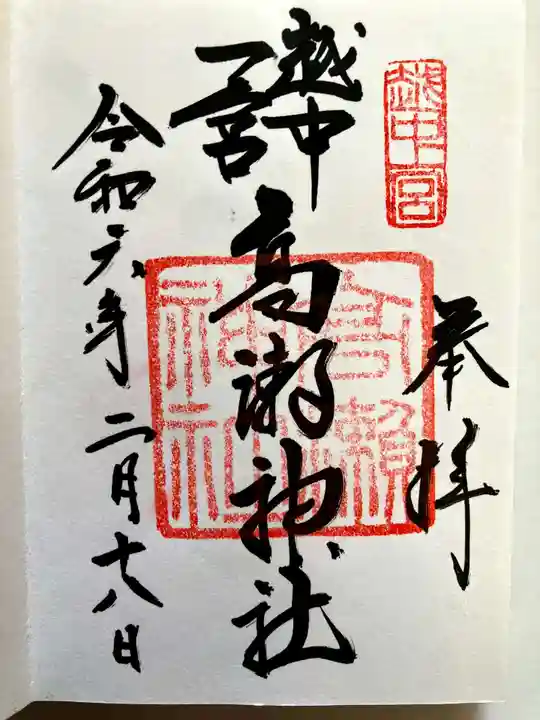 奉拝
越中一宮
越中
一宮
高瀬神社
高瀬神社
令和六年二月十八日